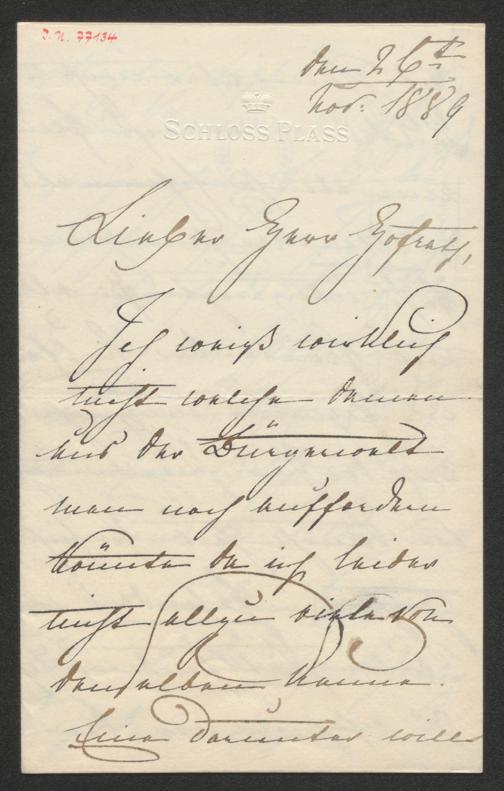 J.N. 77134
den 26t
Nov. 1889
SCHLOSS PLASS
Lieber Herr Hofrath,
Ich weiß wirklich
nicht welche Damen
aus der Bürgerwelt
man noch auffordern
könnte da ich leider
nicht allzu viele von
denselben kenne.
Eine darunter will